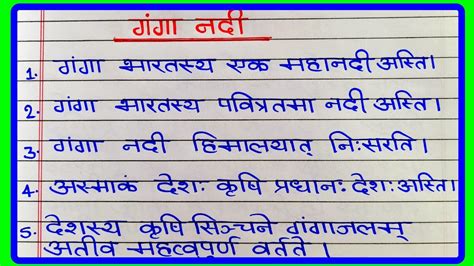 गंगा नदी
1. गंगा भारतस्य एक महानदी अस्ति।
2. गंगा भारतस्य पवित्रतमा नदी अस्ति।
3. गंगा नदी हिमालयात् निःसरति।
4. अस्माकं देशः कृषि प्रधानः देशः अस्ति।
5. देशस्य कृषि सिञ्चने गंगाजलम्
अतीव महत्वपूर्ण वर्तते।